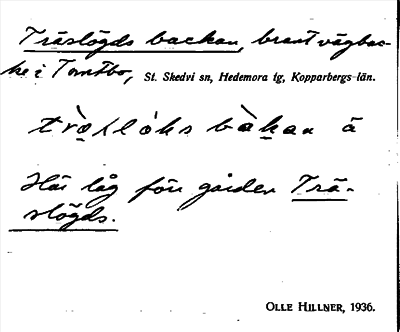 Träslögds backan, brant vägbac-
ke i Tomtbo, St. Skedvi sn, Hedemora tg, Kopparbergs län.
Här låg förr gården Trä-
slögds.
OLLE HILLNER, 1936.